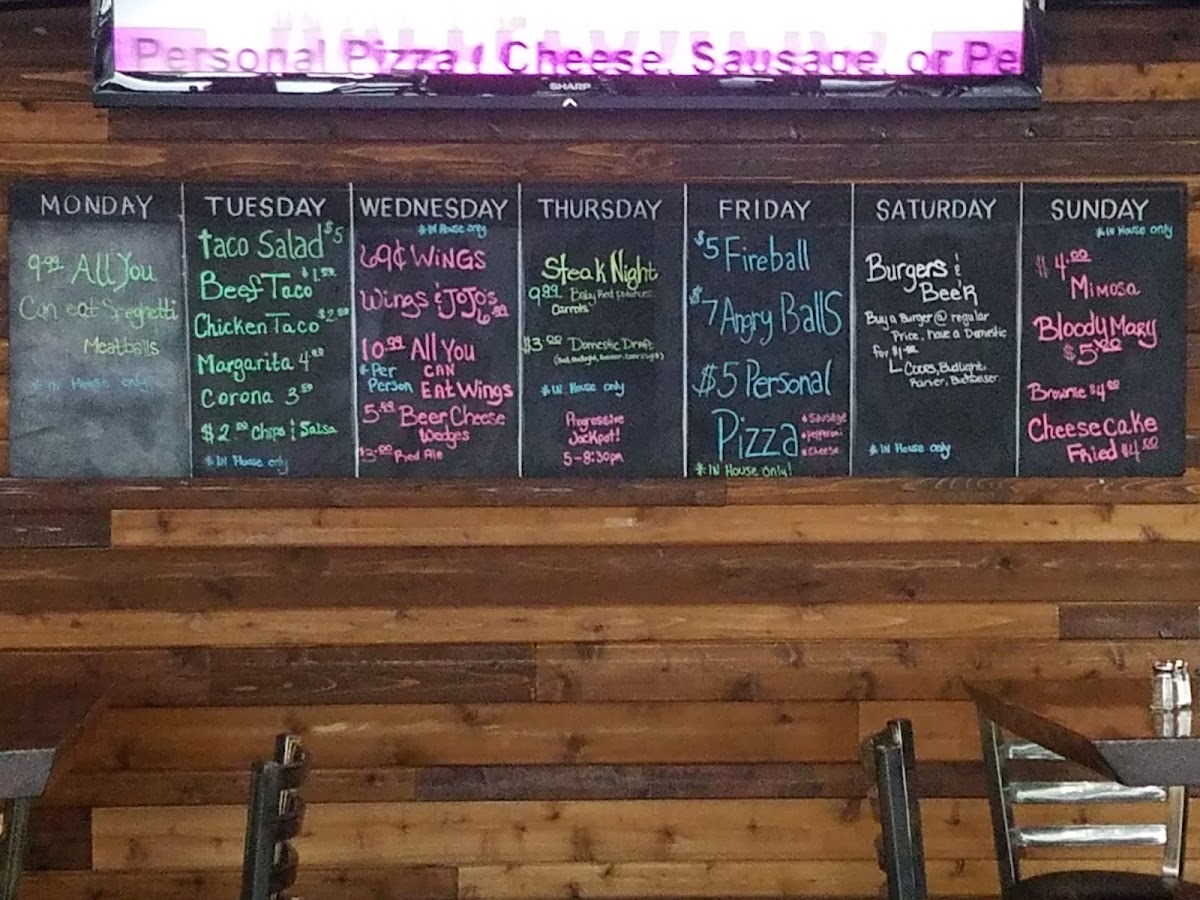 Personal Pizza ( Cheese, Sausage, or Pe
SHARP
MONDAY
9.99 All You
Can eat Spaghetti
Meatballs
*IN House only
TUESDAY
taco Salad $5
Beef Taco $1.50
Chicken Taco $2.50
Margarita 4.00
Corona 3.50
$2.00 Chips & Salsa
*IN House only
WEDNESDAY
*IN House only
69¢ WiNGS
Wings & JoJo's
10.99 All You
*Per CAN
Person Eat Wings
5.49 Beer Cheese
Wedges
$3.00 Red Ale
THURSDAY
Steak Night
9.89 Baby Red potatoes
Carrots
$3.00 Domestic Draft
*IN House only
Progressive
Jackpot!
5-8:30pm
FRIDAY
$5 Fireball
$7 Angry BallS
$5 Personal
Pizza
*Sausage
*pepperoni
*Cheese
*IN House only!
SATURDAY
Burgers &
Beer
Buy a Burger @ regular
Price, have a Domestic
for
Coors, Budlight,
Rainier, Budweiser
*IN House only
SUNDAY
*IN House only
$4.00
Mimosa
Bloody Mary
$5.00
Brownie $4.00
Cheesecake
Fried $4.00